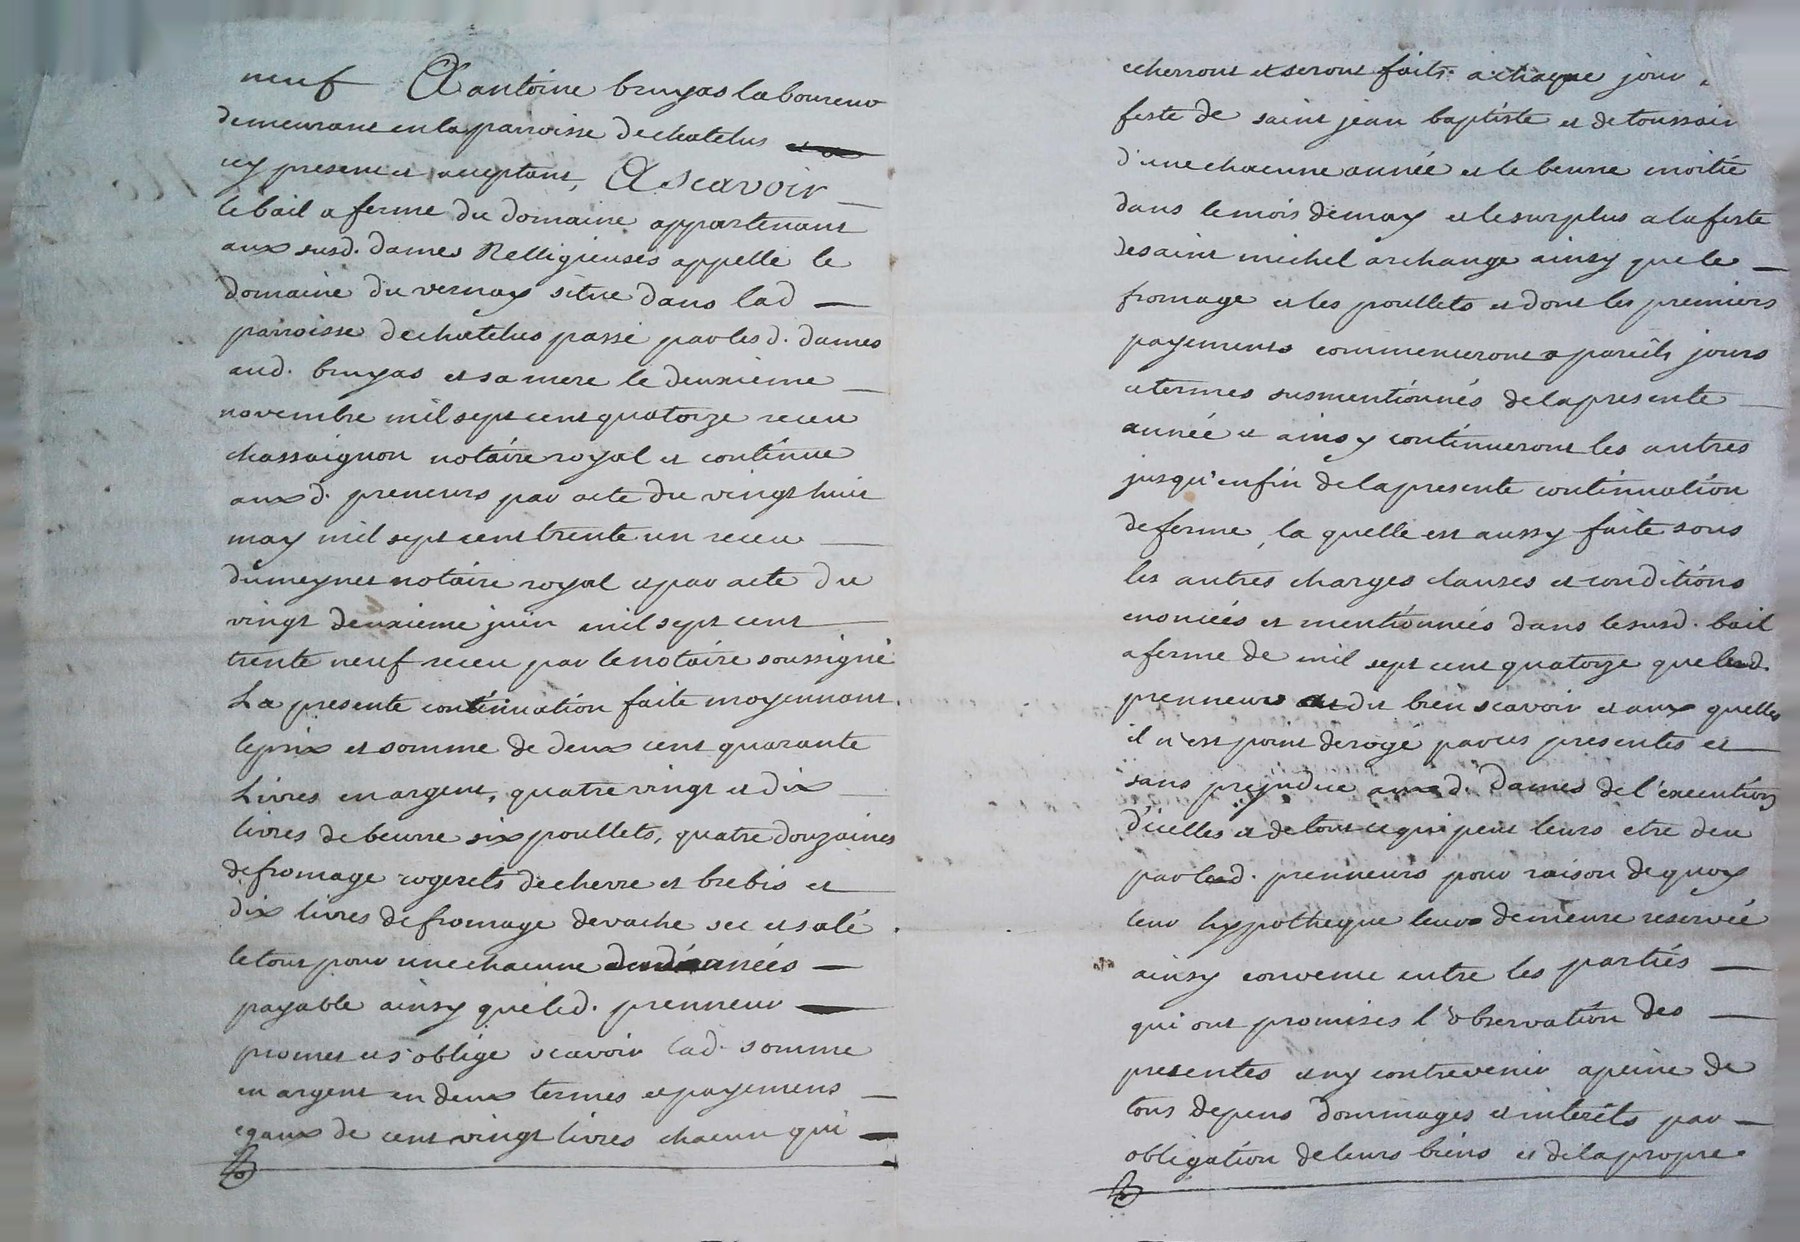 neuf A antoine bruyas laboureur
demeurant en la parroisse de chatelus
icy present et acceptant, A scavoir
le bail a ferme du domaine appartenant
aux susd. dames Relligieuses appellé le
domaine du vernay situe dans lad
parroisse de chatelus passé par lesd. dames
aud. bruyas et sa mere le deuxieme
novembre mil sept cent quatorze receu
chassaignon notaire royal et continue
auxd. preneurs par acte du vingt huit
may mil sept cent trente un receu
dumeynet notaire royal et par acte du
vingt deuxieme juin mil sept cent
trente neuf receu par le notaire soussigné
La presente continuation faite moyennant
le prix et somme de deux cent quarante
Livres en argent, quatre vingt et dix
livres de beurre six poullets, quatre douzaines
de fromage cogerets de chevre et brebis et
dix livres de fromage de vache sec et salé
le tout pour une chacune années
payable ainsy que led. prenneur
promet et s'oblige scavoir lad. somme
en argent en deux termes et payemens
egaux de cent vingt livres chacun qui
echerront et seront faits a chaque jour
feste de saint jean baptiste et de toussain
d'une chacune année et le beurre moitié
dans le mois de may et le surplus a la feste
de saint michel archange ainsy que le
fromage et les poullets et dont les premiers
payements commenceront a pareils jours
et termes susmentionnés de la presente
année et ainsy continueront les autres
jusqu'en fin de la presente continuation
de ferme, la quelle est aussy faite sous
les autres charges clauses et conditions
enoncées et mentionnées dans le susd. bail
a ferme de mil sept cent quatorze que led.
prenneur dit bien scavoir et aux quelles
il n'est point derogé par ces presentes et
sans prejudice auxd. Dames de l'execution
d'icelles et de tout ce qui peut leurs etre deu
par led. prenneurs pour raison de quoy
leur hypotheque leurs demeure reservée
ainsy convenu entre les partiés
qui ont promises l'observation des
presentes et ny contrevenir a peine de
tous depens dommages et interêts par
obligation de leurs biens et de la propre